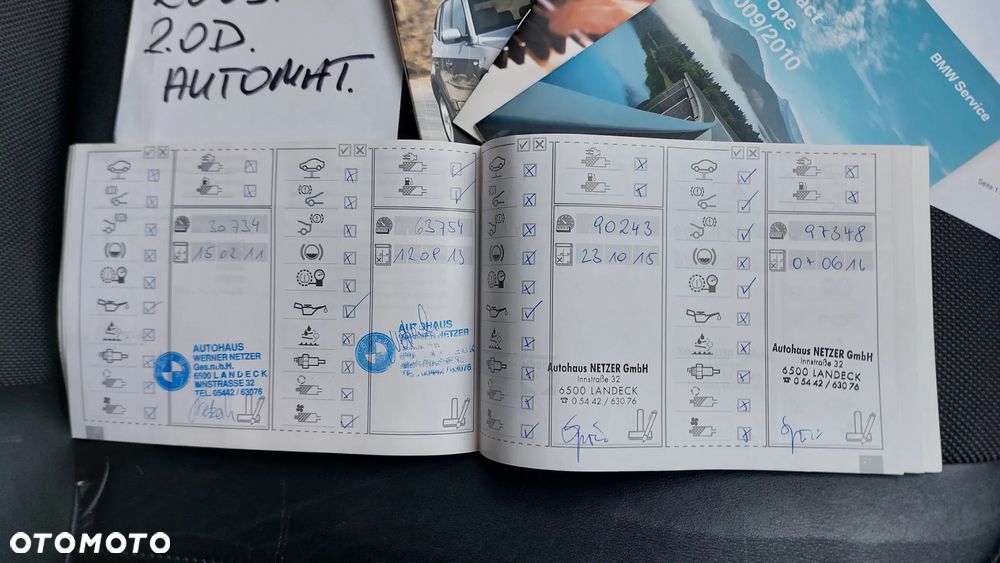 2.0D.
AUTOMAT.
2009/2010
BMW Service
Seite 1
30734
150211
AUTOHAUS
WERNER NETZER
Ges.m.b.H.
6500 LANDECK
INNSTRASSE 32
TEL. 05442/63076
63754
120813
AUTOHAUS
WERNER NETZER
90243
231015
Autohaus NETZER GmbH
Innstraße 32
6500 LANDECK
☎ 0 54 42 / 630 76
97348
070616
Autohaus NETZER GmbH
Innstraße 32
6500 LANDECK
☎ 0 54 42 / 630 76
21
OTOMOTO